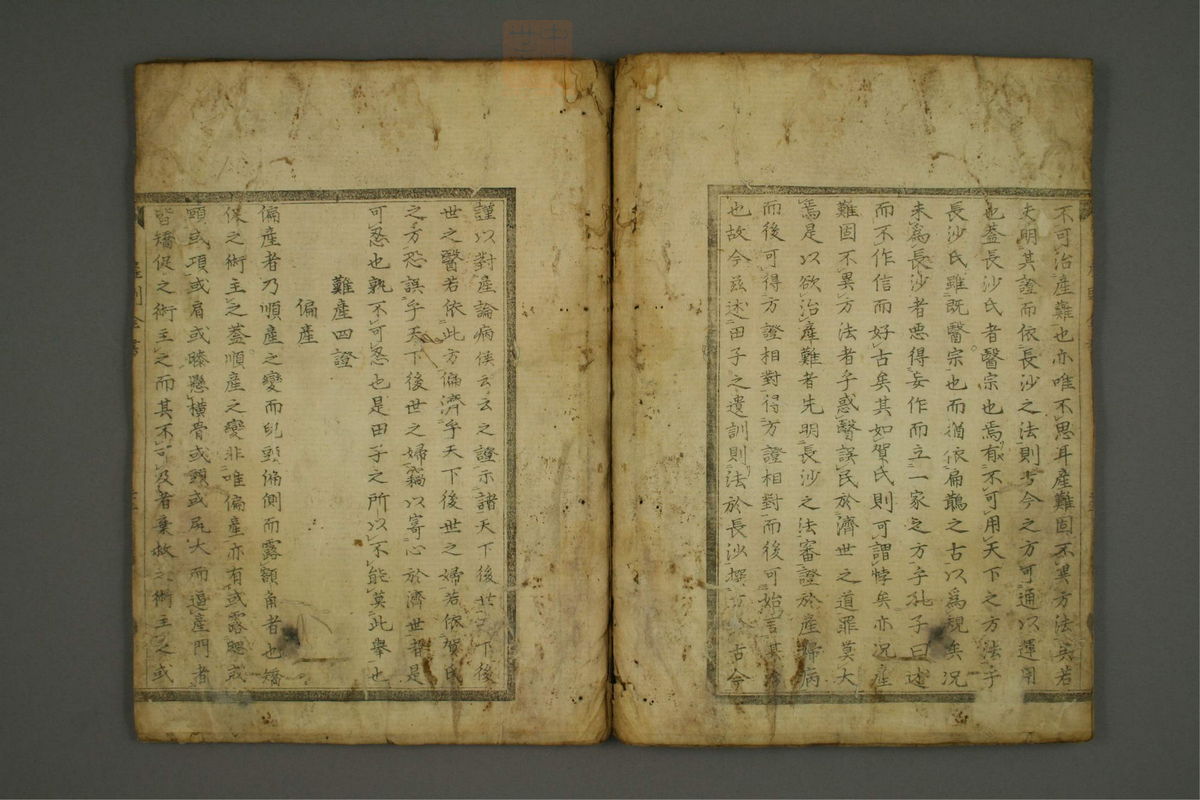 不可治産難也亦唯不思耳産難固不異方法矣若
夫明其證而依長沙之法則古今之方可通以運用
也蓋長沙氏者醫宗也焉有不可用天下之方法乎
長沙氏雖既醫宗也而猶依扁鵲之古以爲規矣况
未爲長沙者悪得妄作而立一家之方乎孔子曰述
而不作信而好古矣其如賀氏則可謂悖矣亦况産
難固不異方法者乎惑醫誤民於濟世之道罪莫大
焉是以欲治産難者先明長沙之法審證於産婦病
而後可得方證相對得方證相對而後可始言其治
也故今茲述田子之遺訓則法於長沙撰方 古今
謹以對産論病候云云之證示諸天下後世 下後
世之醫若依此方偏濟乎天下後世之婦若依賀氏
之方恐誤乎天下後世之婦竊以寄心於濟世者是
可忍也孰不可忍也是田子之所以不能莫此舉也
難産四證
偏産
偏産者乃順産之變而乳頸偏側而露額角者也矯
俣之術主之蓋順産之變非唯偏産亦有或露腮或
頭或項或肩或膝懸横骨或頸或尻大而逼産門者
皆矯促之術主之而其不可及者棄救之術主之或